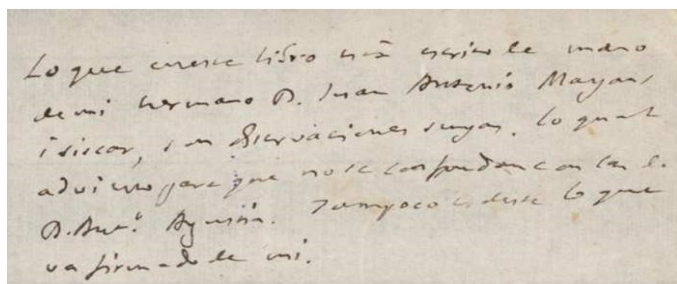 Lo que eneste libro está escrito de mano
de mi hermano D. Juan Antonio Mayans
i siscar, son observaciones suyas. lo qual
advierto para que no se confundan con las de
D. Ant.º Agustin. Tampoco es deste lo que
va firmado de mi.